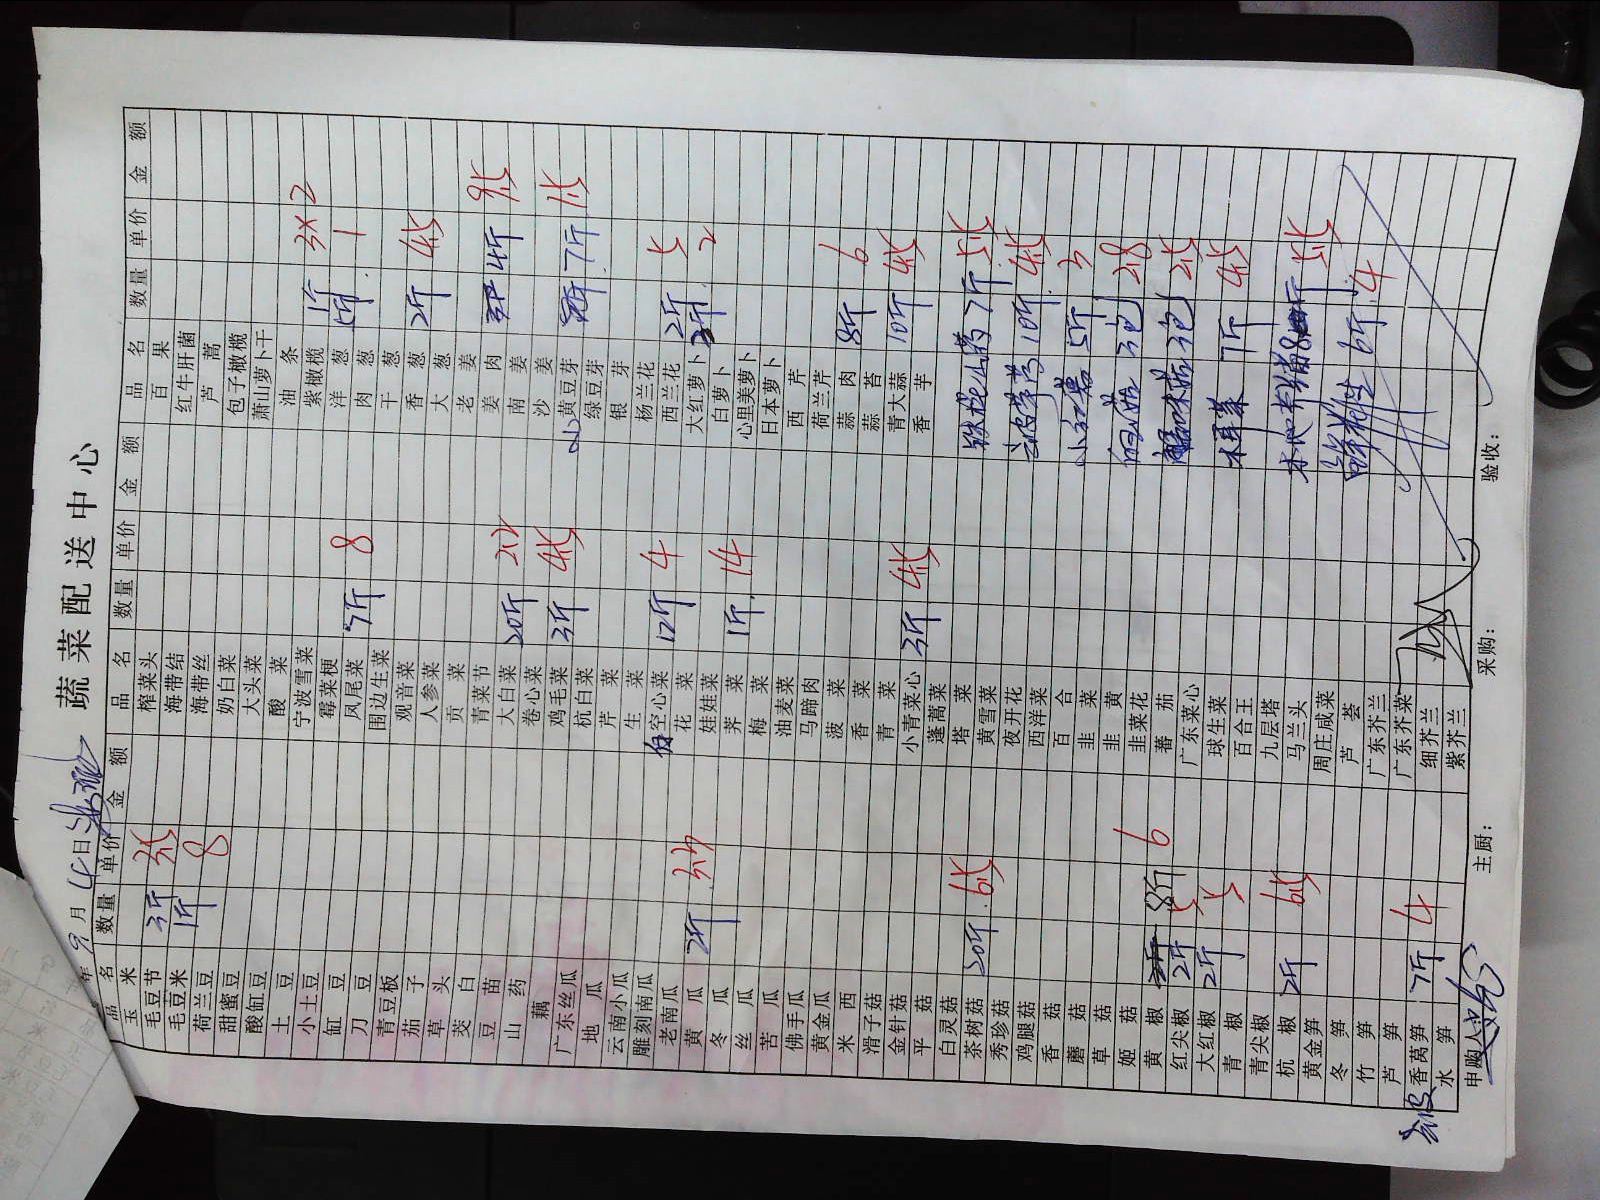 蔬菜配送中心
年 9 月 4 日
品名 数量 单价 金额 品名 数量 单价 金额 品名 数量 单价 金额
玉米 榨菜头 百果
毛豆节 3斤 3.5 海带结 红牛肝菌
毛豆米 1斤 8 海带丝 芦蒿
荷兰豆 奶白菜 包子橄榄
甜蜜豆 大头菜 萧山萝卜干
酸缸豆 酸菜 油条
土豆 宁波雪菜 紫橄榄 1个 3×2
小土豆 霉菜梗 洋葱 5斤 1
缸豆 凤尾菜 7斤 8 肉葱
刀豆 围边生菜 干葱
青豆板 观音菜 香葱 2斤 4.5
茄子 人参菜 大葱
草头 贡菜 老姜
茭白 青菜节 姜肉 4斤 9.5
豆苗 大白菜 20斤 2.2 南姜
山药 卷心菜 沙姜
藕 鸡毛菜 3斤 4.5 小黄豆芽 7斤 1.5
广东丝瓜 杭白菜 绿豆芽
地瓜 芹菜 银芽
云南小瓜 生菜 杨兰花
雕刻南瓜 白空心菜 12斤 4 西兰花 2斤 5
老南瓜 花菜 大红萝卜 3斤 2
黄瓜 2斤 娃娃菜 白萝卜
冬瓜 荠菜 1斤 14 心里美萝卜
丝瓜 梅菜 日本萝卜
苦瓜 油麦菜 西芹
佛手瓜 马蹄肉 荷兰芹
黄金瓜 菠菜 蒜肉 8斤 6
米西 香菜 蒜苔
滑子菇 青菜 青大蒜 10斤 4.5
金针菇 小青菜心 3斤 4.5 香芋
平菇 蓬蒿菜
白灵菇 塔菜 铁棍山药 7斤 5.5
茶树菇 20斤 6.5 黄雪菜
秀珍菇 夜开花 10斤 4.5
鸡腿菇 西洋菜
香菇 百合 小江薯 5斤 3
蘑菇 韭菜
草菇 韭黄 白菇 3包 2.8
姬菇 韭菜花
黄椒 8斤 6 蕃茄 3包 2.5
红尖椒 2斤 5 广东菜心
大红椒 2斤 5 球生菜 木耳菜 7斤 4.5
青椒 百合王
青尖椒 九层塔
杭椒 2斤 6.5 马兰头 5.5
黄金笋 周庄咸菜
冬笋 芦荟 6斤 4
竹笋 广东芥兰
芦笋 广东芥菜
香莴笋 7斤 4 细芥兰
水笋 紫芥兰
申购人： 主厨： 采购： 验收：